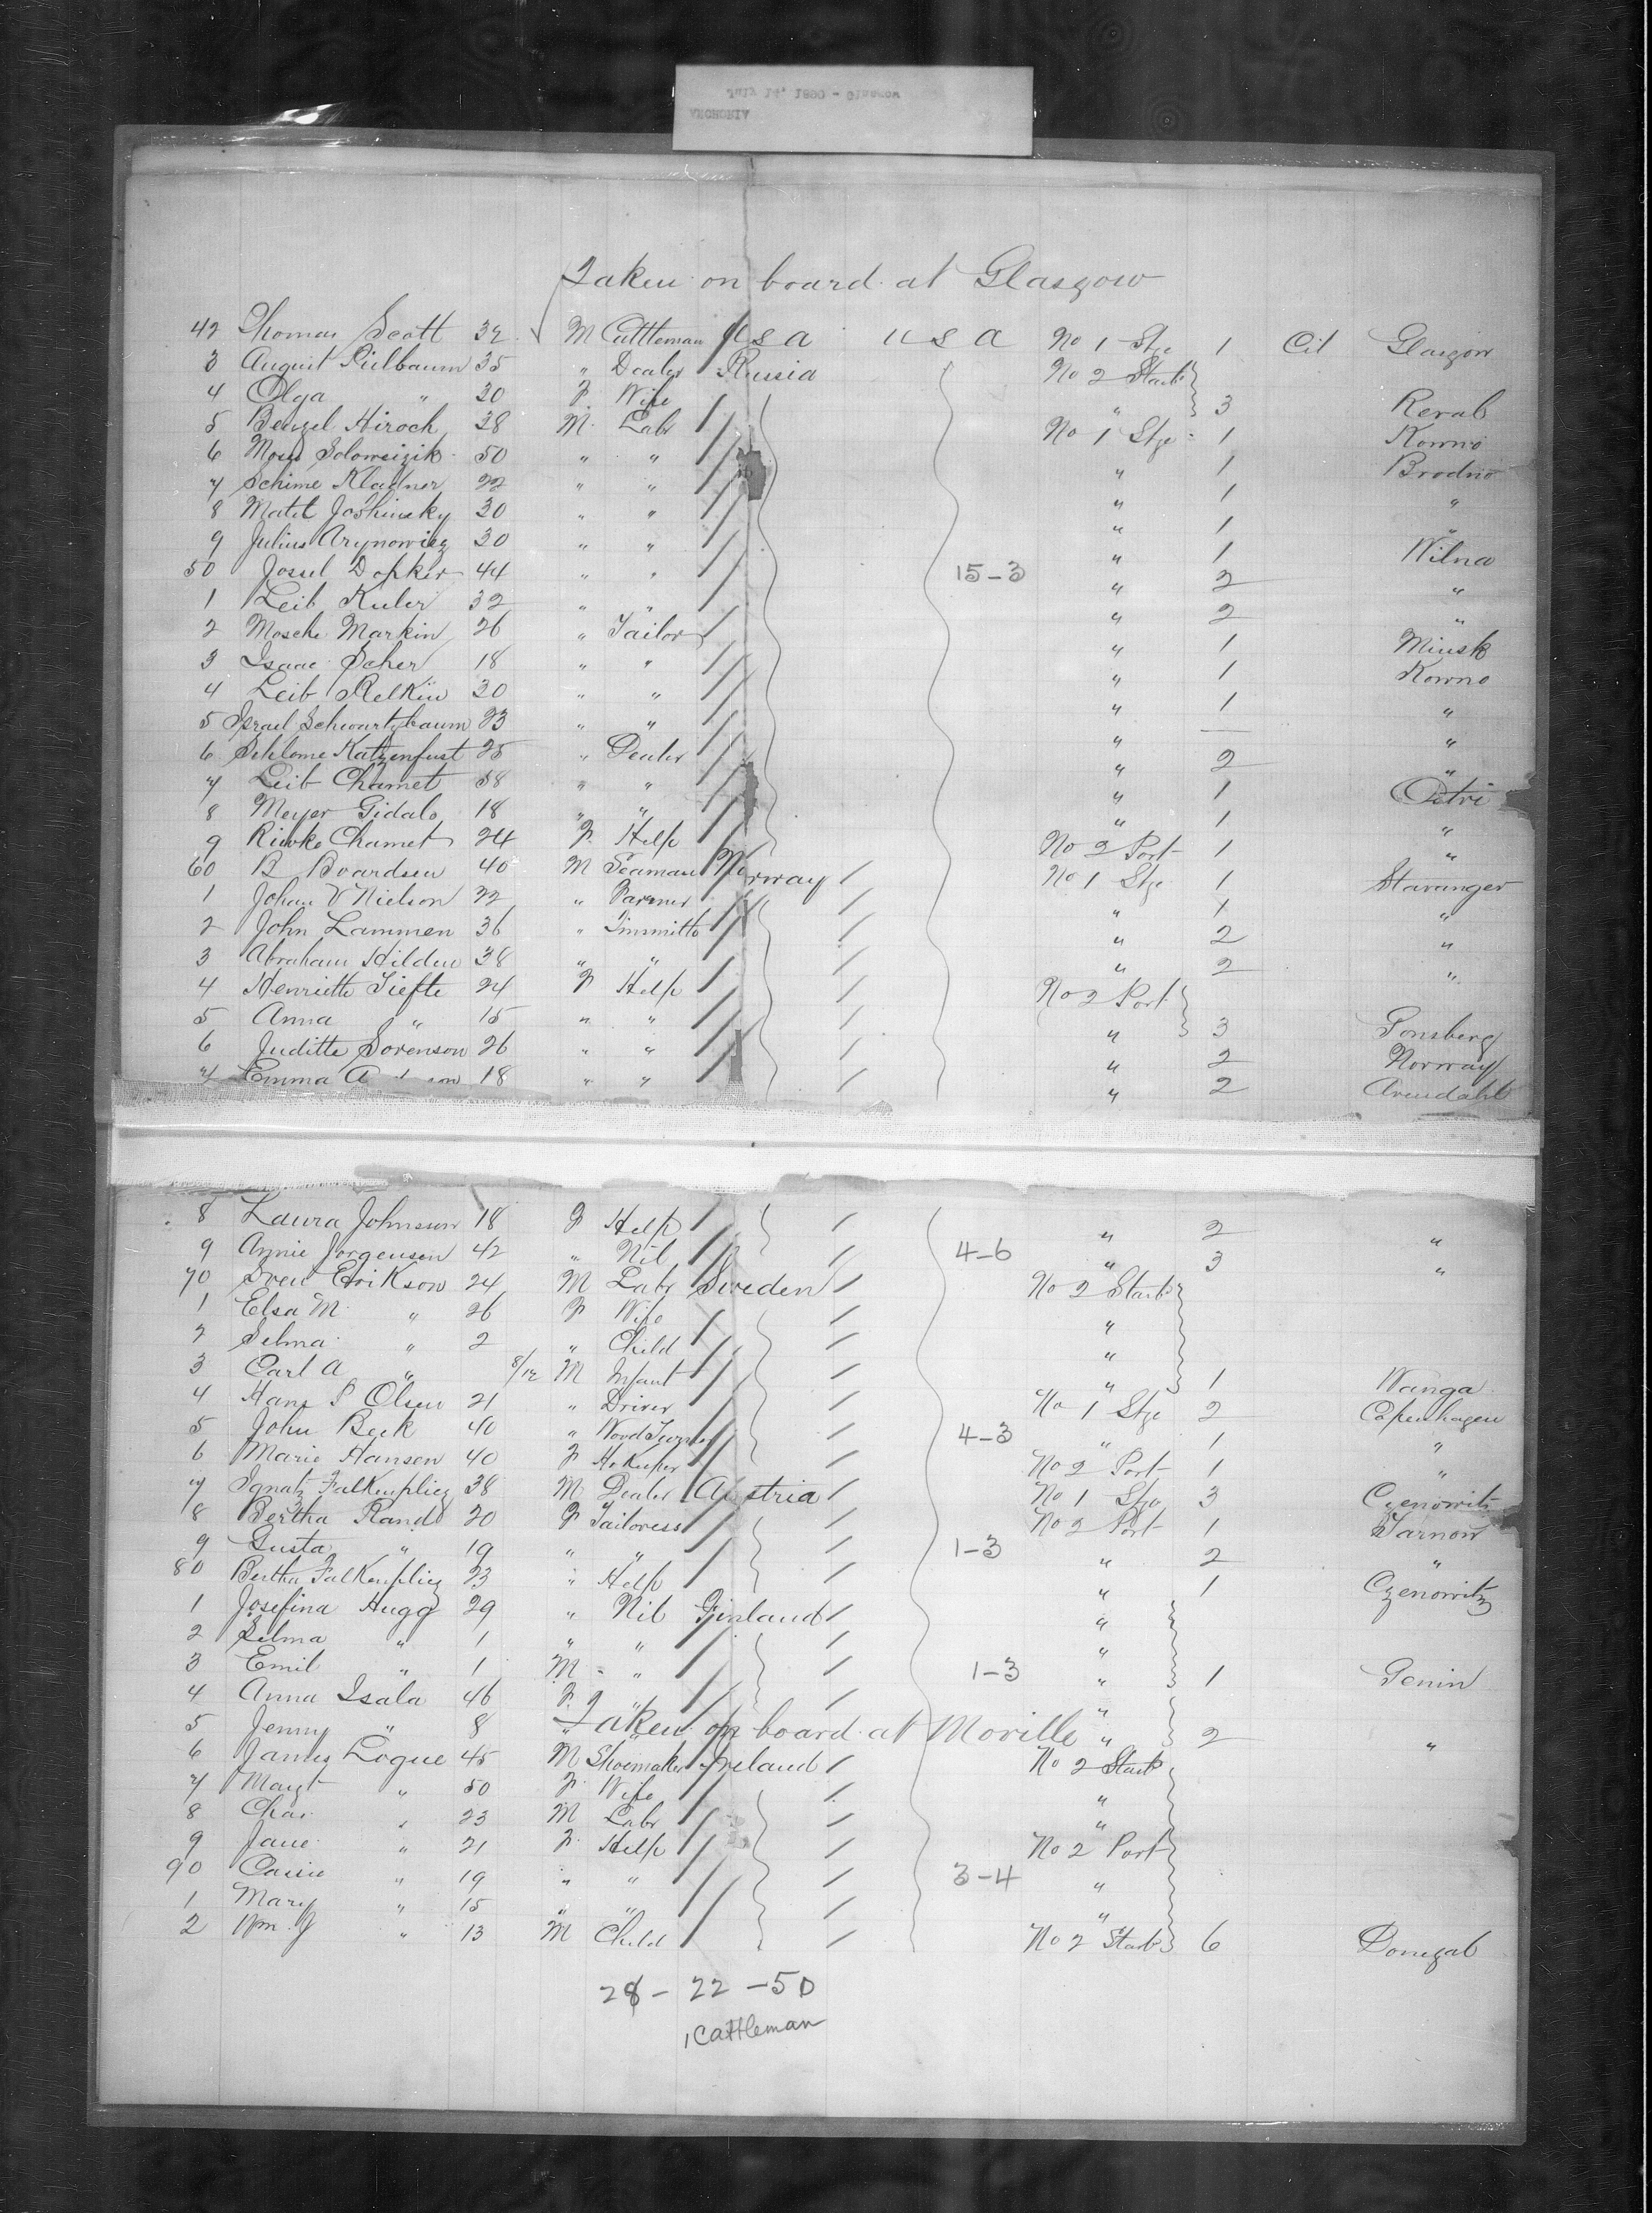 July 14, 1890 - Glasgow
Taken on board at Glasgow
42 Thomas Scott 32 M Cattleman U S A U S A No 1 Stge 1 Cit Glasgow
3 August Rulbaum 35 " Dealer Russia No 2 Starb
4 Olga " 30 F. Wife " 3 Reval
5 Benzel Hiroch 38 M. Labr No 1 Stge 1 Kowno
6 Moses 50 " " " 1 Brodno
7 Schime Kladner 22 " " " 1 "
8 Matel Joshinsky 30 " " " 1 "
9 Julius Arynowicz 30 " " " 1 Wilna
50 Jossel Dopker 44 " " " 2 "
1 Leib Kuler 32 " " " 2 "
2 Mosche Markin 26 " Tailor " 1 Minsk
3 Isaac Scher 18 " " " 1 Kowno
4 Leib Relkin 30 " " " 1 "
5 Israel Schwartzbaum 23 " " " — "
6 Schlome Katzenfust 25 " Dealer " 2 "
7 Leib Chamet 58 " " " 1
8 Meyer Gidalo 18 " " " 1 "
9 Riwke Chamet 24 F. Help No 2 Port 1 "
15-3
60 B Boardsen 40 M Seaman Norway No 1 Stge 1 Stavanger
1 Johan V Nielson 22 " Farmer " 1 "
2 John Lammen 36 " Tinsmith " 2 "
3 Abraham Hilden 38 " " " 2 "
4 Henriette Tiefte 24 F Help No 2 Port
5 Anna " 15 " " " 3 Tonsberg
6 Juditte Sorenson 26 " " " 2 Norway
7 Emma 18 " " " 2 Arendahl
8 Laura Johnson 18 F Help " 2 "
9 Annie Jorgensen 42 " Nil 4-6 " 3 "
70 Sven Erikson 24 M Labr Sweden No 2 Starb
1 Elsa M. " 26 F Wife "
2 Selma " 2 " Child "
3 Carl A " 8/12 M Infant " 1 Wanga
4 Hans P Olsen 21 " Driver No 1 Stge 2 Copenhagen
5 John Beck 40 " Wood Turner 4-3 " 1 "
6 Marie Hansen 40 F HoKeeper No 2 Port 1 "
7 Ignatz Falkenflicz 38 M Dealer Austria No 1 Stge 3 Czenowitz
8 Bertha Rand 20 F Tailoress No 2 Port 1 Tarnow
9 Gusta " 19 " " 1-3 " 2 "
80 Bertha Falkenflicz 23 " Help " 1 Czenowitz
1 Josefina Hugg 29 " Nil Finland "
2 Selma " 1 " " "
3 Emil " 1 M " " 1-3 " 1 Genin
4 Anna Isala 46 F. " "
5 Jenny " 8 " " " 2 "
Taken on board at Moville
6 James Logue 45 M Shoemaker Ireland No 2 Starb
7 Margt " 50 F. Wife "
8 Chas. " 23 M Labr "
9 Jane " 21 F. Help No 2 Port
90 Cassie " 19 " " 3-4 "
1 Mary " 15 " " "
2 Wm. J " 13 M Child No 2 Starb 6 Donegal
28 - 22 - 50
1 Cattleman